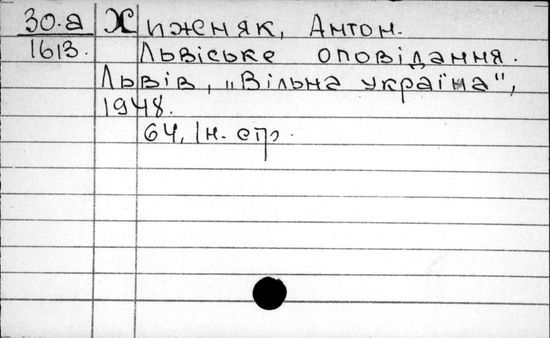 30.а Хижняк, Антон.
1613. Львіське оповідання.
Львів, „Вільна україна",
1948.
64, Iн. стр.